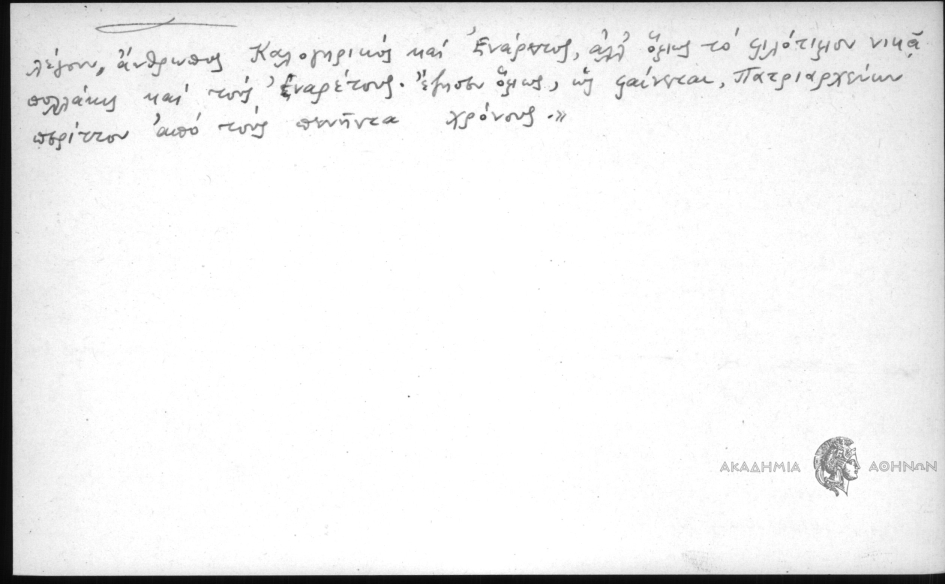 λέγουν, ἄνθρωπος Καλογηρικός καί Ἐνάρετος, ἀλλ' ὅμως τό φιλότιμον νικᾷ
πολλάκις καί τούς Ἐναρέτους. ἔζησεν ὅμως, ὡς φαίνεται, Πατριαρχεύων
περίττον ἀπό τούς πενῆντα χρόνους.»
ΑΚΑΔΗΜΙΑ ΑΘΗΝΩΝ